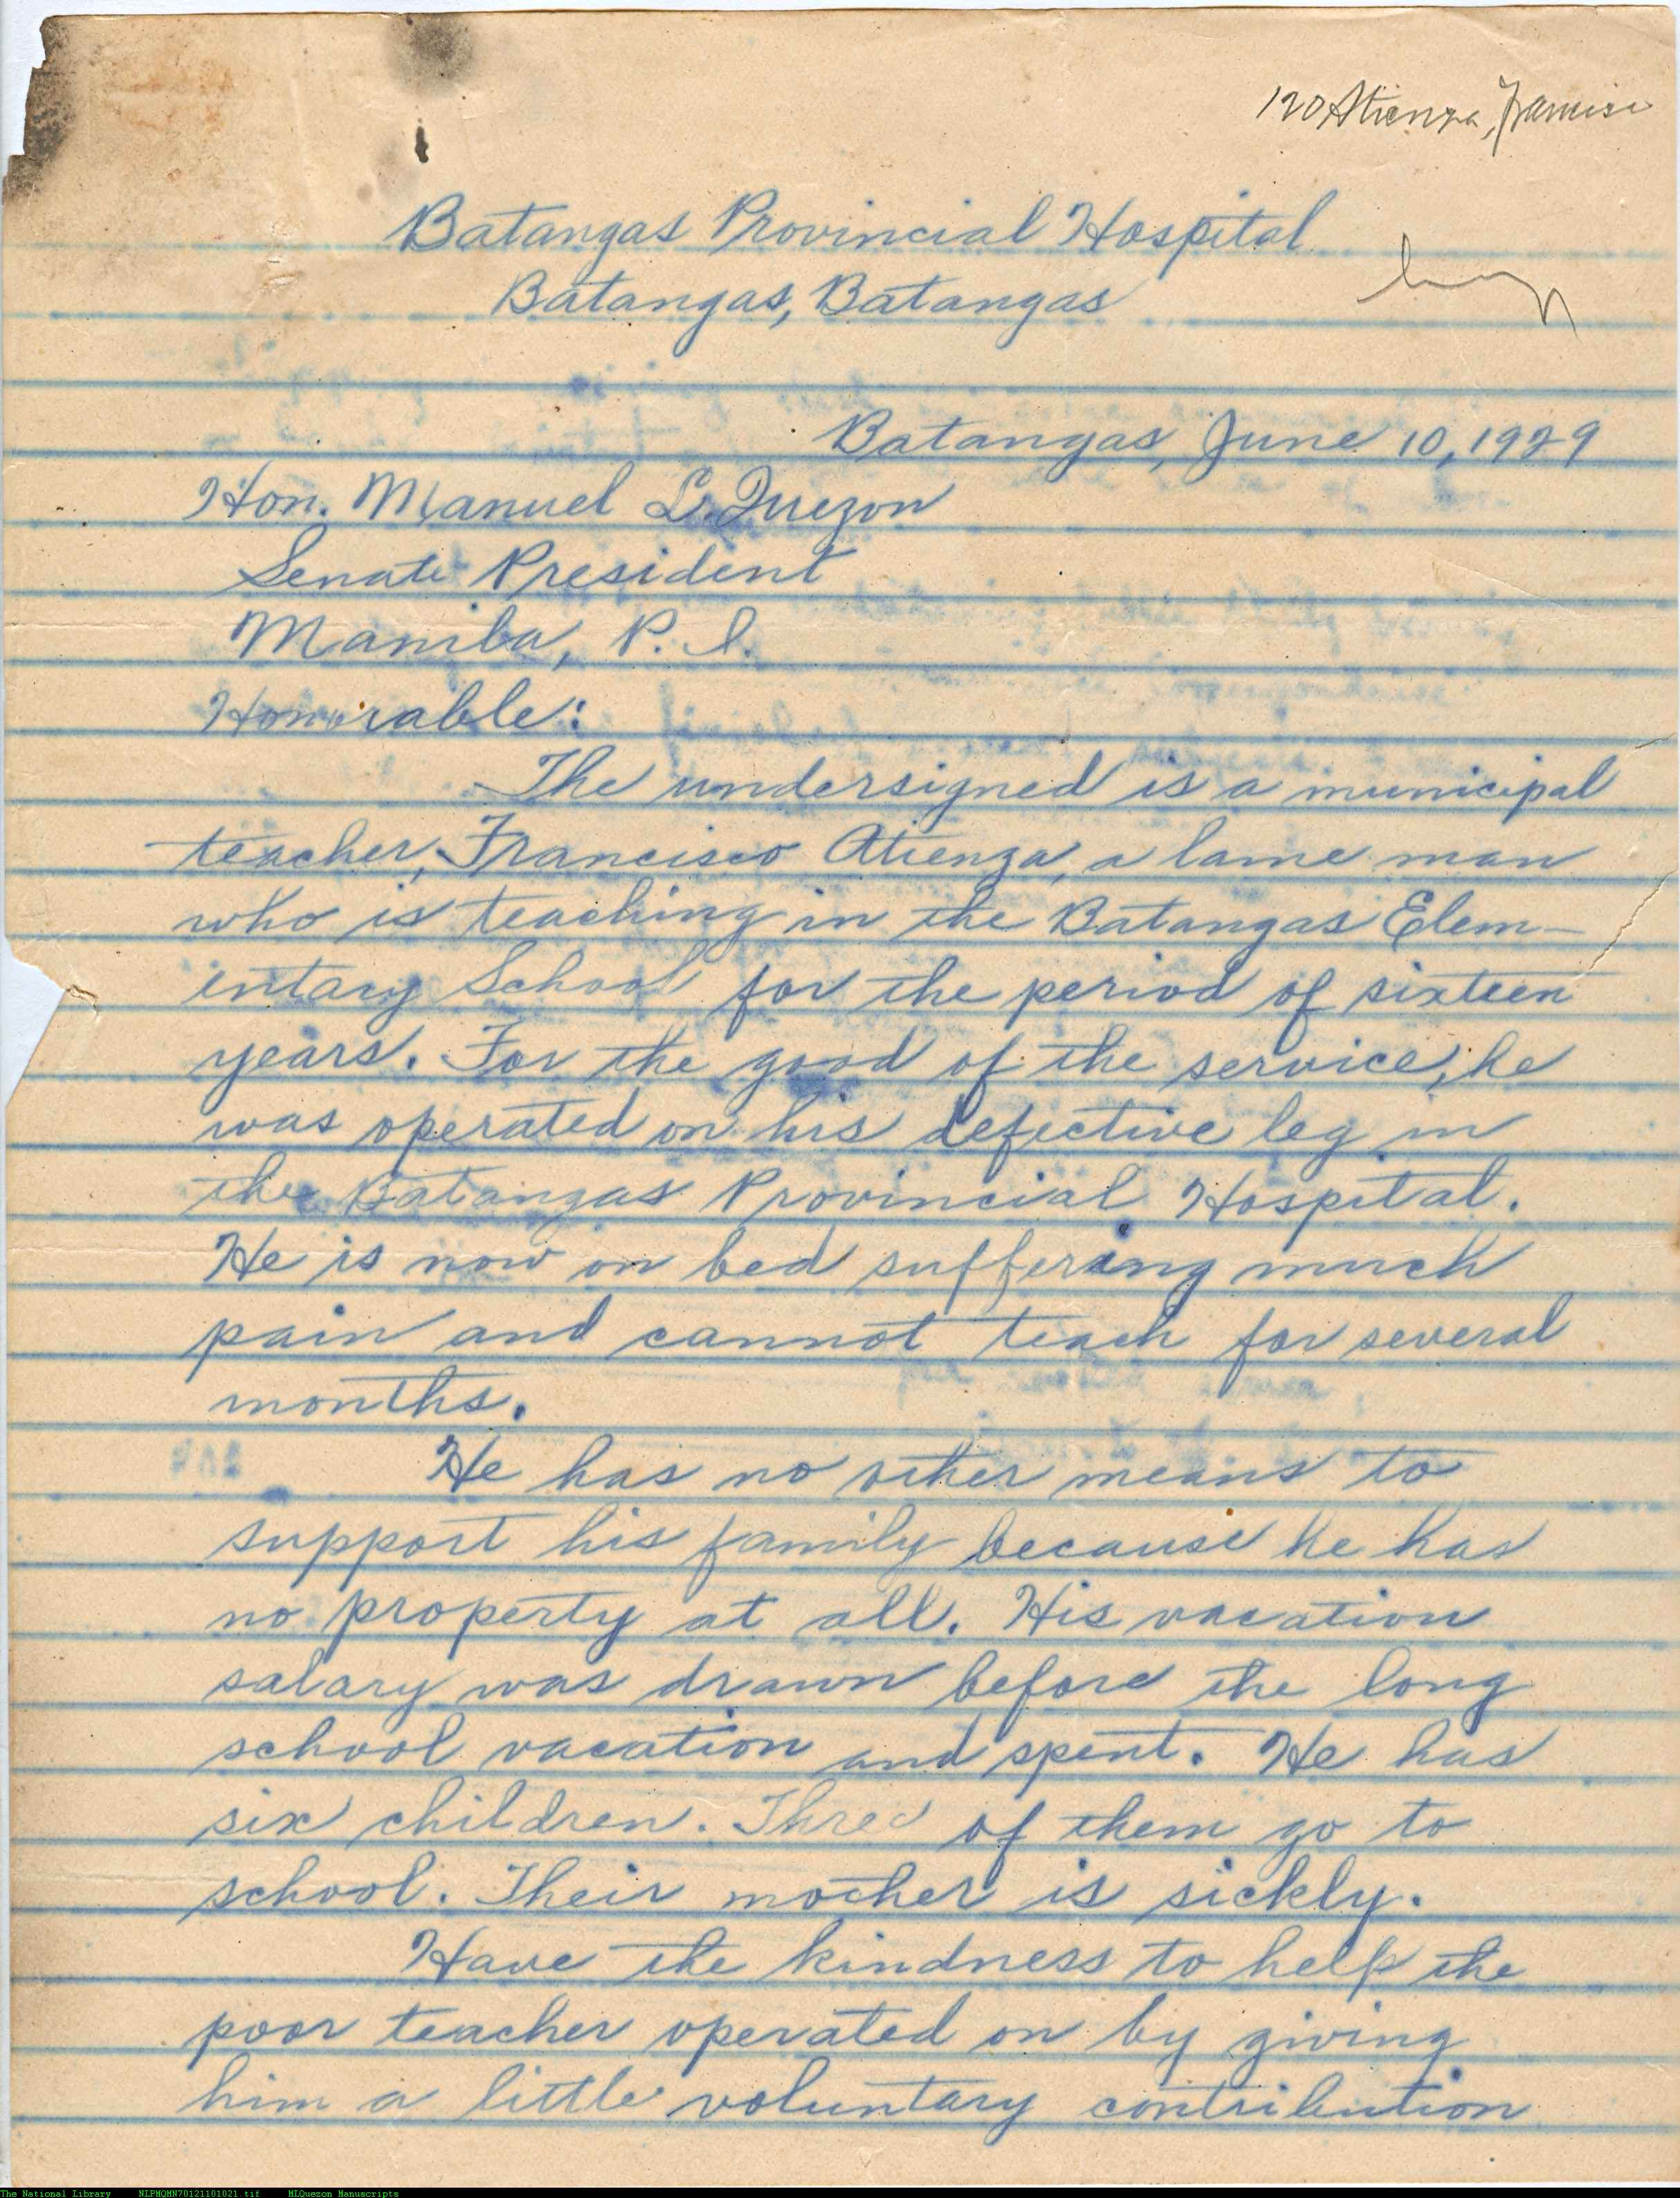 120 Atienza,
Batangas Provincial Hospital
Batangas, Batangas
Batangas, June 10, 1929
Hon. Manuel L. Quezon
Senate President
Manila, P. I.
Honorable:
The undersigned is a municipal
teacher, Francisco Atienza, a lame man
who is teaching in the Batangas Elem-
entary School for the period of sixteen
years. For the good of the service, he
was operated on his defective leg in
the Batangas Provincial Hospital.
He is now on bed suffering much
pain and cannot teach for several
months.
He has no other means to
support his family because he has
no property at all. His vacation
salary was drawn before the long
school vacation and spent. He has
six children. Three of them go to
school. Their mother is sickly.
Have the kindness to help the
poor teacher operated on by giving
him a little voluntary contribution
The National Library NLPMQMN70121101021.tif MLQuezon Manuscripts